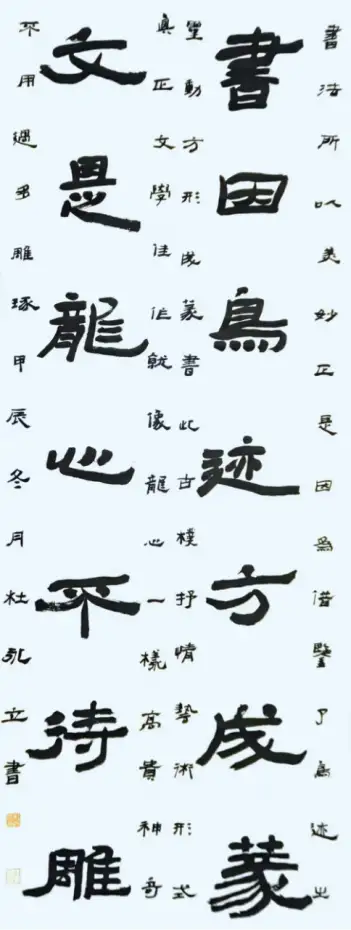 書法所以美妙正是因為借鑒了鳥迹之
書因鳥迹方成篆
靈動方形成篆書此古樸抒情藝術形式
真正文學佳作就像龍心一樣高貴神奇
文思龍心不待雕
不用過多雕琢甲辰冬月杜立書